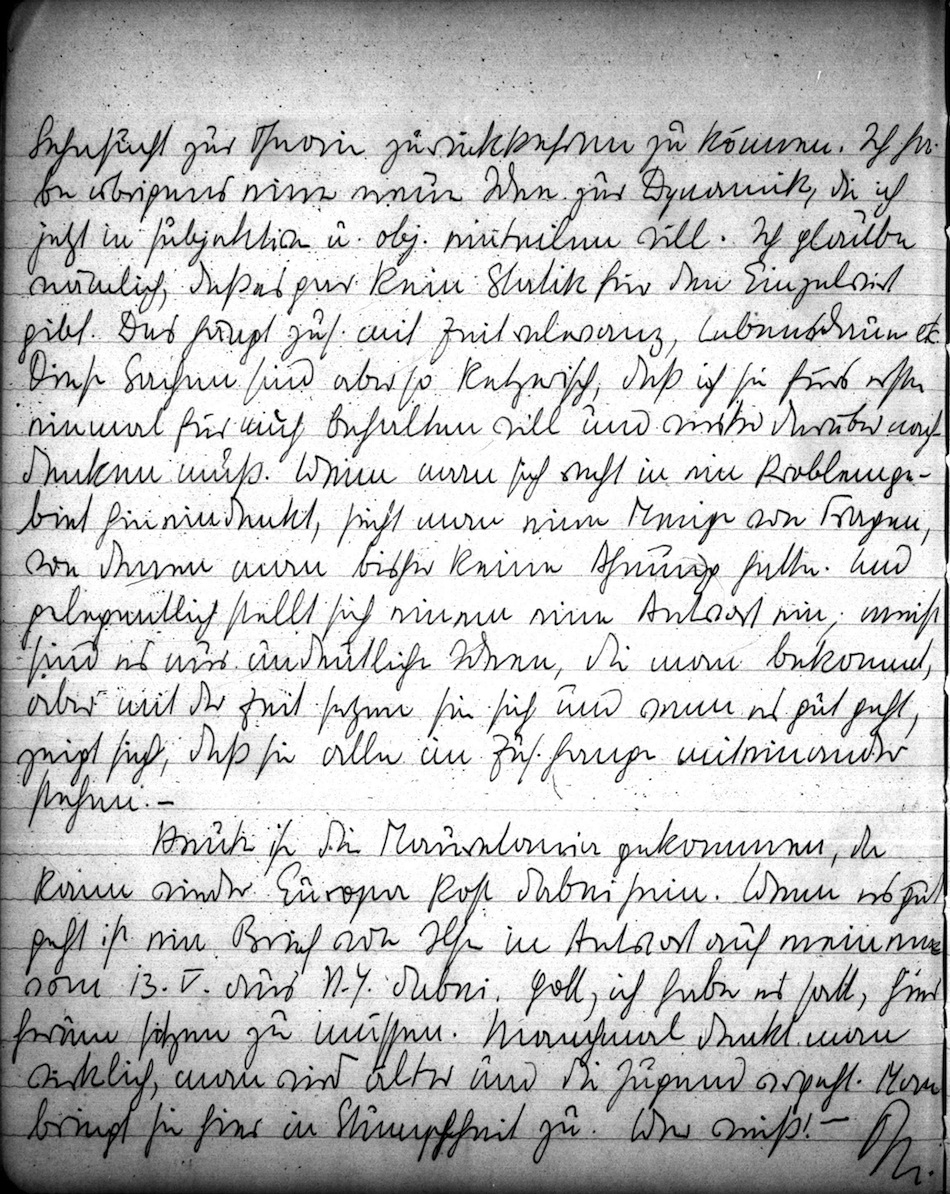 Sehnsucht zur Theorie zurückkehren zu können. Ich ha-
be übrigens eine neue Idee zur Dynamik, die ich
jetzt in subjektiv u. obj. mitteilen will. Ich glaube
nämlich, daß es gar keine Statik für den Einzelwirt
gibt. Das hängt zus. mit Zeitrelevanz, Lebensdauer etc.
Diese Sachen sind aber so ketzerisch, daß ich sie fürs erste
einmal für mich behalten will und weiter darüber nach-
denken muß. Wenn man sich recht in ein Problemge-
biet hineindenkt, sieht man eine Menge von Fragen,
von denen man bisher keine Ahnung hatte. Und
gelegentlich stellt sich einem eine Antwort ein; meist
sind es nur undeutliche Ideen, die man bekommt,
aber mit der Zeit setzen sie sich und wenn es gut geht,
zeigt sich, daß sie alle im Zus.hange miteinander
stehen. –
Heute ist die Mauretania gekommen, da
kann wieder Europa Post dabei sein. Wenn es gut
geht ist ein Brief von Ilse in Antwort auf meinen
vom 13. V. aus N.Y. dabei. Gott, ich habe es satt, hier
herum sitzen zu müssen. Manchmal denkt man
wirklich, man wird älter und die Jugend vergeht. Man
bringt sie hier in Stumpfheit zu. Wer weiß! –